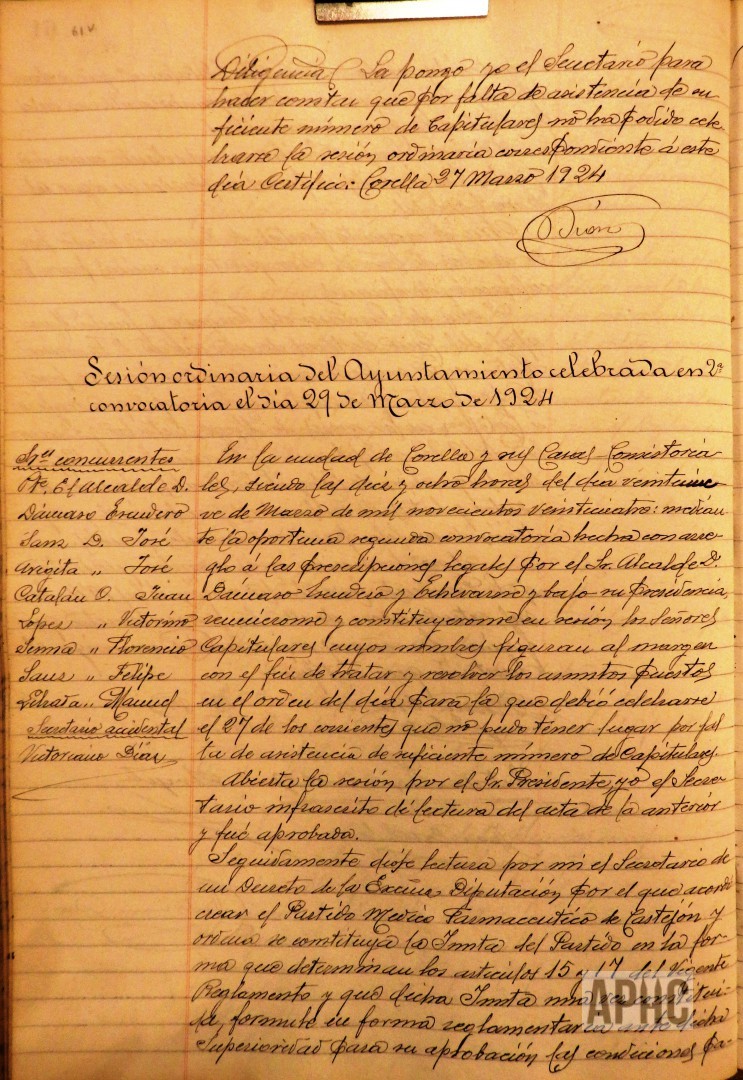 61v
Diligencia La pongo yo el Secretario para
hacer constar que por falta de asistencia de su
ficiente número de Capitulares no ha podido cele
brarse la sesión ordinaria correspondiente á este
día Certifico: Corella 27 Marzo 1924
Dían
Sesión ordinaria del Ayuntamiento celebrada en 2ª
convocatoria el día 29 de Marzo de 1924
Sres concurrentes
Pte. El Alcalde D.
Dámaso Escudero
Sanz D. José
Arigita " José
Catalán O. Juan
López " Victorino
Sesma " Florencio
Sanz " Felipe
Manuel
Secretario accidental
Victoriano Dían
En la ciudad de Corella y sus Casas Consistoria
les, siendo las diez y ocho horas del día veintinue
ve de Marzo de mil novecientos veinticuatro: median
te la oportuna segunda convocatoria hecha con arre
glo á las prescripciones legales por el Sr. Alcalde D.
Dámaso Escudero y Echeverria y bajo su presidencia,
reunieronse y constituyeronse en sesión los Señores
Capitulares cuyos nombres figuran al margen
con el fin de tratar y resolver los asuntos puestos
en el orden del día para la que debió celebrarse
el 27 de los corrientes que no pudo tener lugar por fal
ta de asistencia de suficiente número de Capitulares.
Abierta la sesión por el Sr. Presidente, yo el Secre
tario infrascrito dí lectura del acta de la anterior
y fué aprobada.
Seguidamente dióse lectura por mi el Secretario de
un Decreto de la Excma Diputación por el que acordó
crear el Partido Medico Farmaceutico de Castejón y
ordena se constituya la Junta del Partido en la for
ma que determinan los articulos 15 y 17 del Vigente
Reglamento y que dicha Junta una vez constitui-
da, formule en forma reglamentaria ante dicha
Superioridad para su aprobación las condiciones pa-
APHC